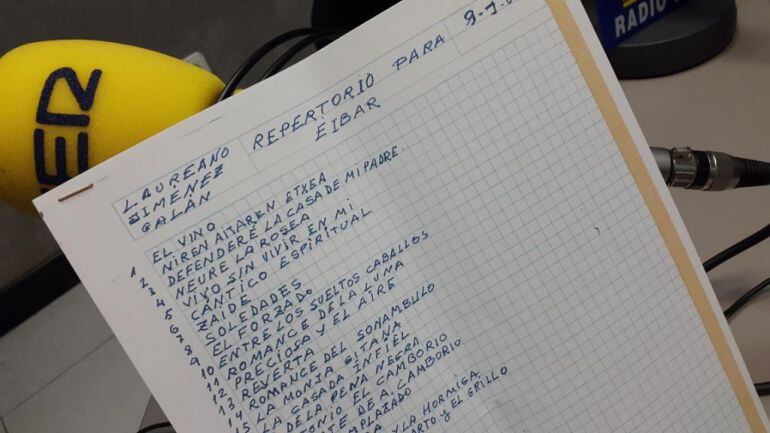 SER
RADIO
LAUREANO
JIMÉNEZ
GALÁN
REPERTORIO PARA
EIBAR
1 EL VINO
2 NIREN AITAREN ETXEA
DEFENDERÉ LA CASA DE MI PADRE.
3 NEURE LA ROSEA
4 VIVO SIN VIVIR EN MI
5 CÁNTICO ESPIRITUAL
6 ZAIDE
7 SOLEDADES
8 EL FORZADO
9 ENTRE LOS SUELTOS CABALLOS
10 ROMANCE DE LA LUNA
11 PRECIOSA Y EL AIRE
12 REYERTA
13 ROMANCE DEL SONAMBULO
14 LA MONJA GITANA
15 LA CASADA INFIEL
DE LA PENA NEGRA
ANTONIO EL CAMBORIO
DE A. CAMBORIO
EMPLAZADO
Y LA HORMIGA
Y EL GRILLO